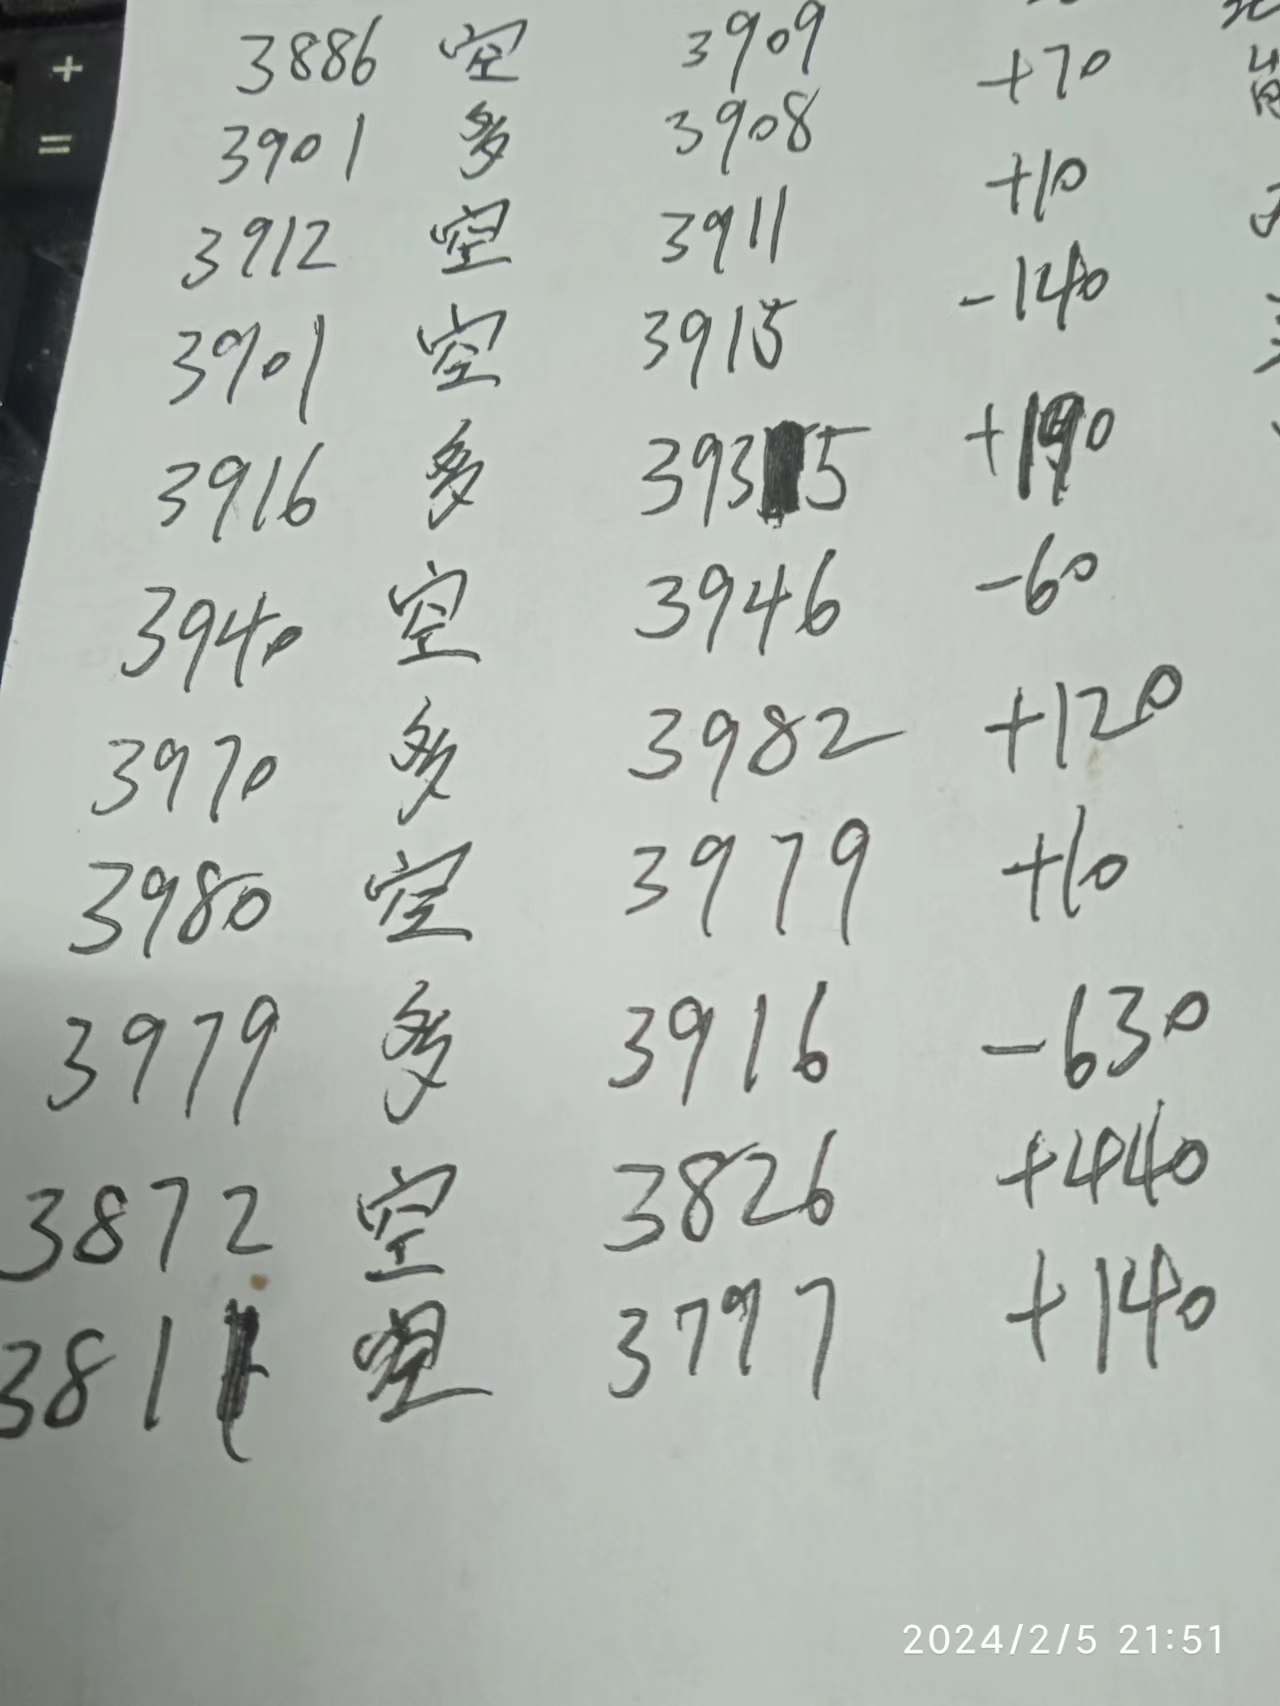 +
=
3886 空 3909
3901 多 3908 +70
3912 空 3911 +10
3901 空 3915 -140
3916 多 3935 +190
3940 空 3946 -60
3970 多 3982 +120
3980 空 3979 +10
3979 多 3916 -630
3872 空 3826 +440
3811 空 3797 +140
2024/2/5 21:51